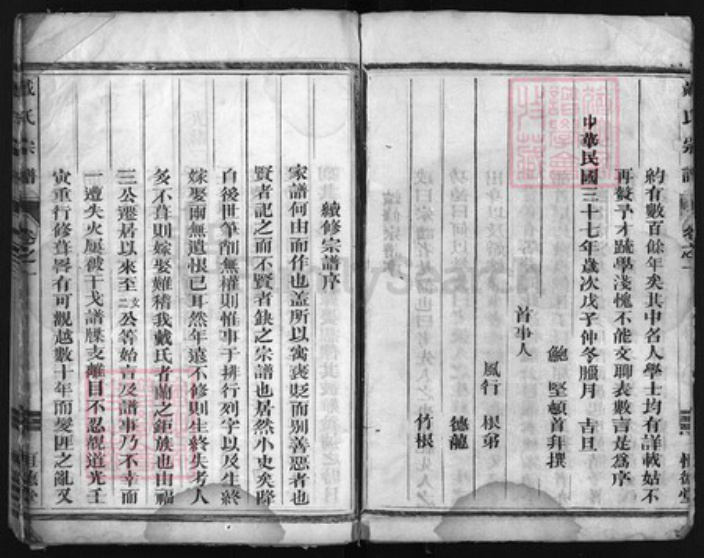 戴氏宗譜
約有數百餘年矣其中名人學士均有詳載姑不
再贅予才疏學淺愧不能文聊表數言是為序
中華民國三十七年歲次戊子仲冬臘月 吉旦
鮑 堅頓首拜撰
首事人
風行 根弟
德龍
竹根
續修宗譜序
家譜何由而作也蓋所以寓褒貶而别善惡者也
賢者記之而不賢者缺之宗譜也居然小史矣降
自後世筆削無權則惟事于排行列字以及生終
嫁娶兩無遺恨已耳然年遠不修則生終失考人
多不葺則嫁娶難稽我戴氏者蘭之鉅族也由福
三公遷居以來至二文公等始言及譜事乃不幸而
一遭失火屢被干戈譜牒支離目不忍覩道光壬
寅重行修葺畧有可觀越數十年而變匪之亂又
戴氏宗譜 卷之一
FamilySearch